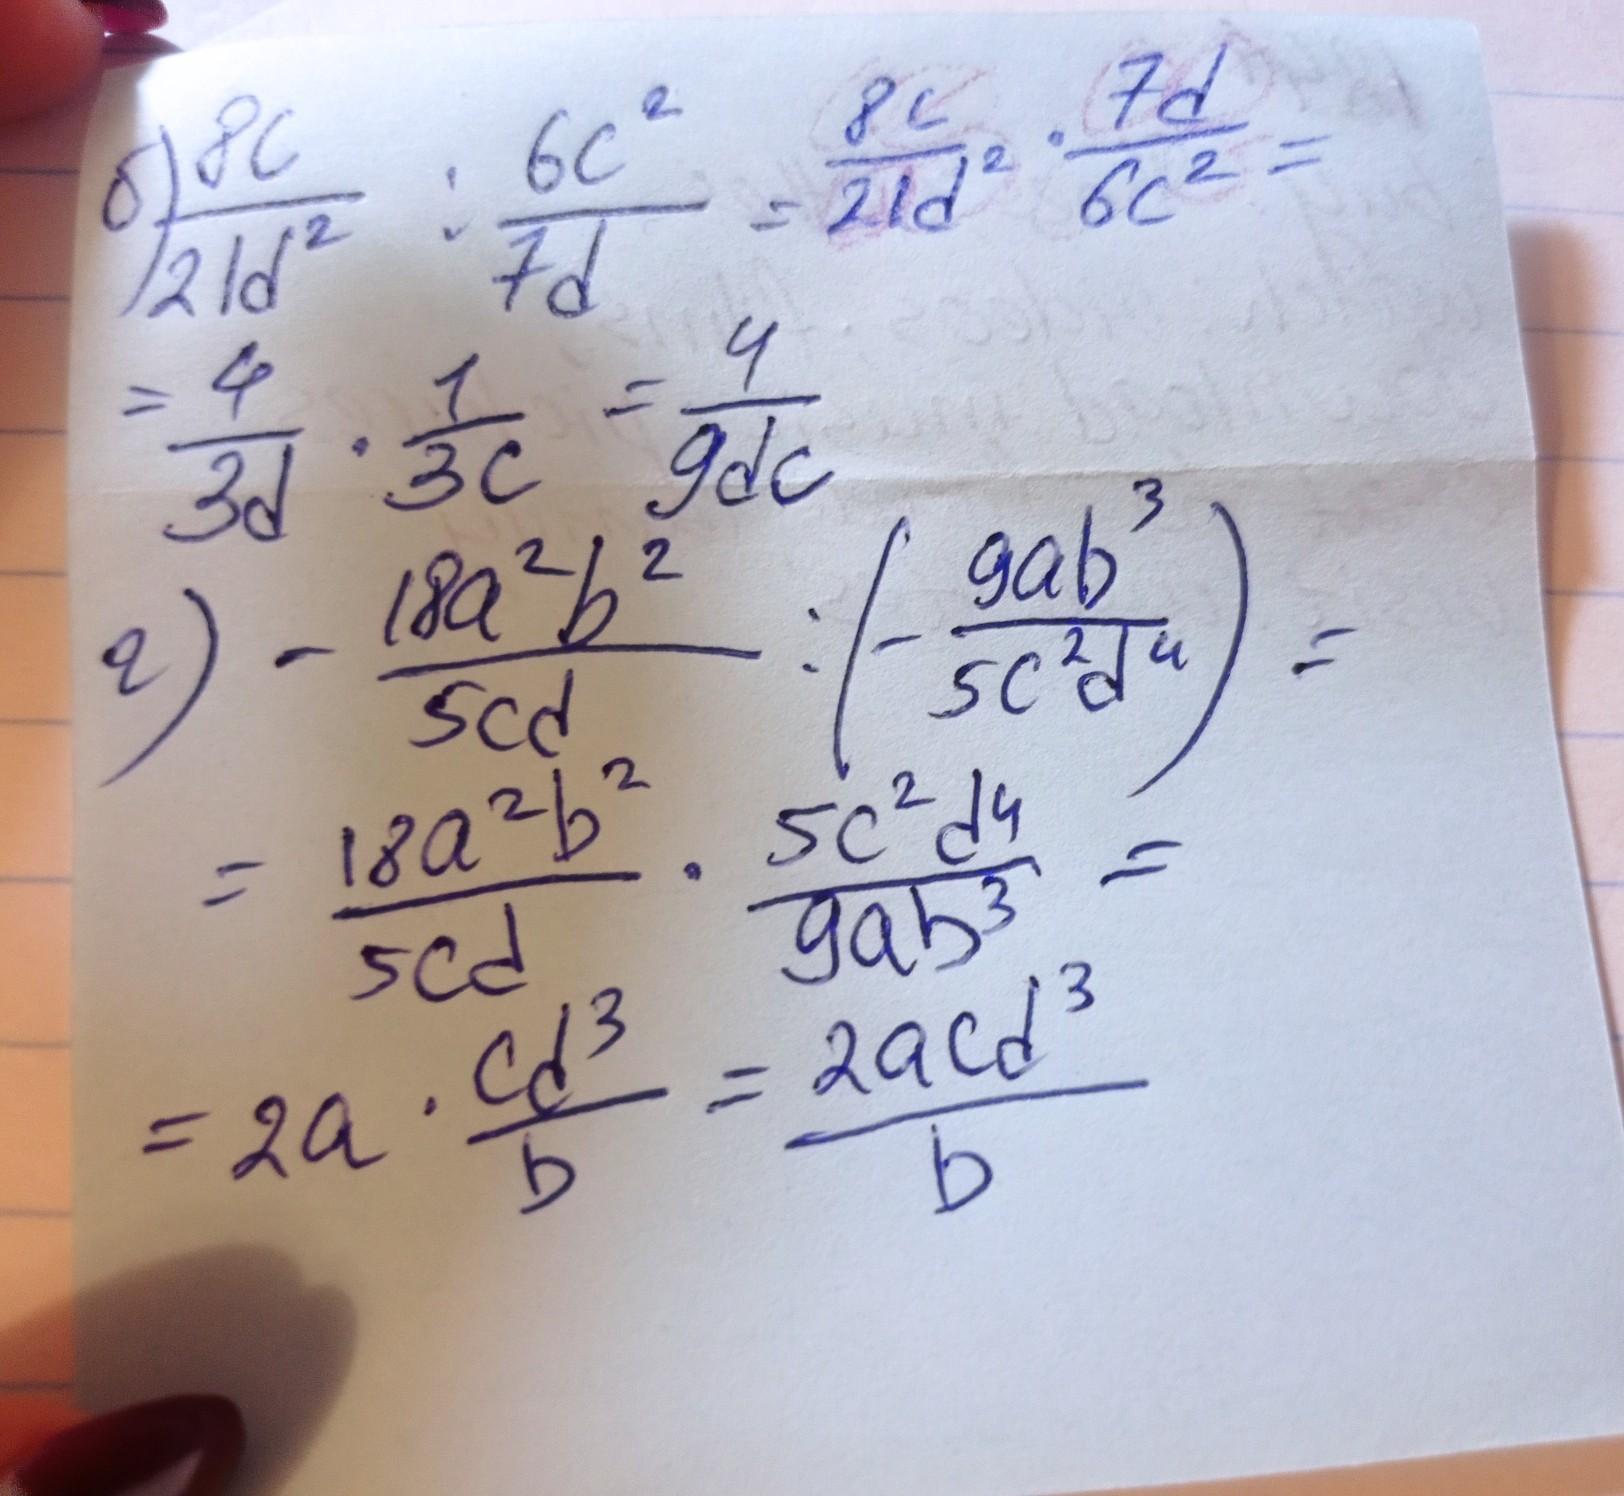 б) 8c/21d² : 6c²/7d = 8c/21d² · 7d/6c² =
= 4/3d · 1/3c = 4/9dc
г) - 18a²b²/5cd : (- 9ab³/5c²d⁴) =
= 18a²b²/5cd · 5c²d⁴/9ab³ =
= 2a · cd³/b = 2acd³/b